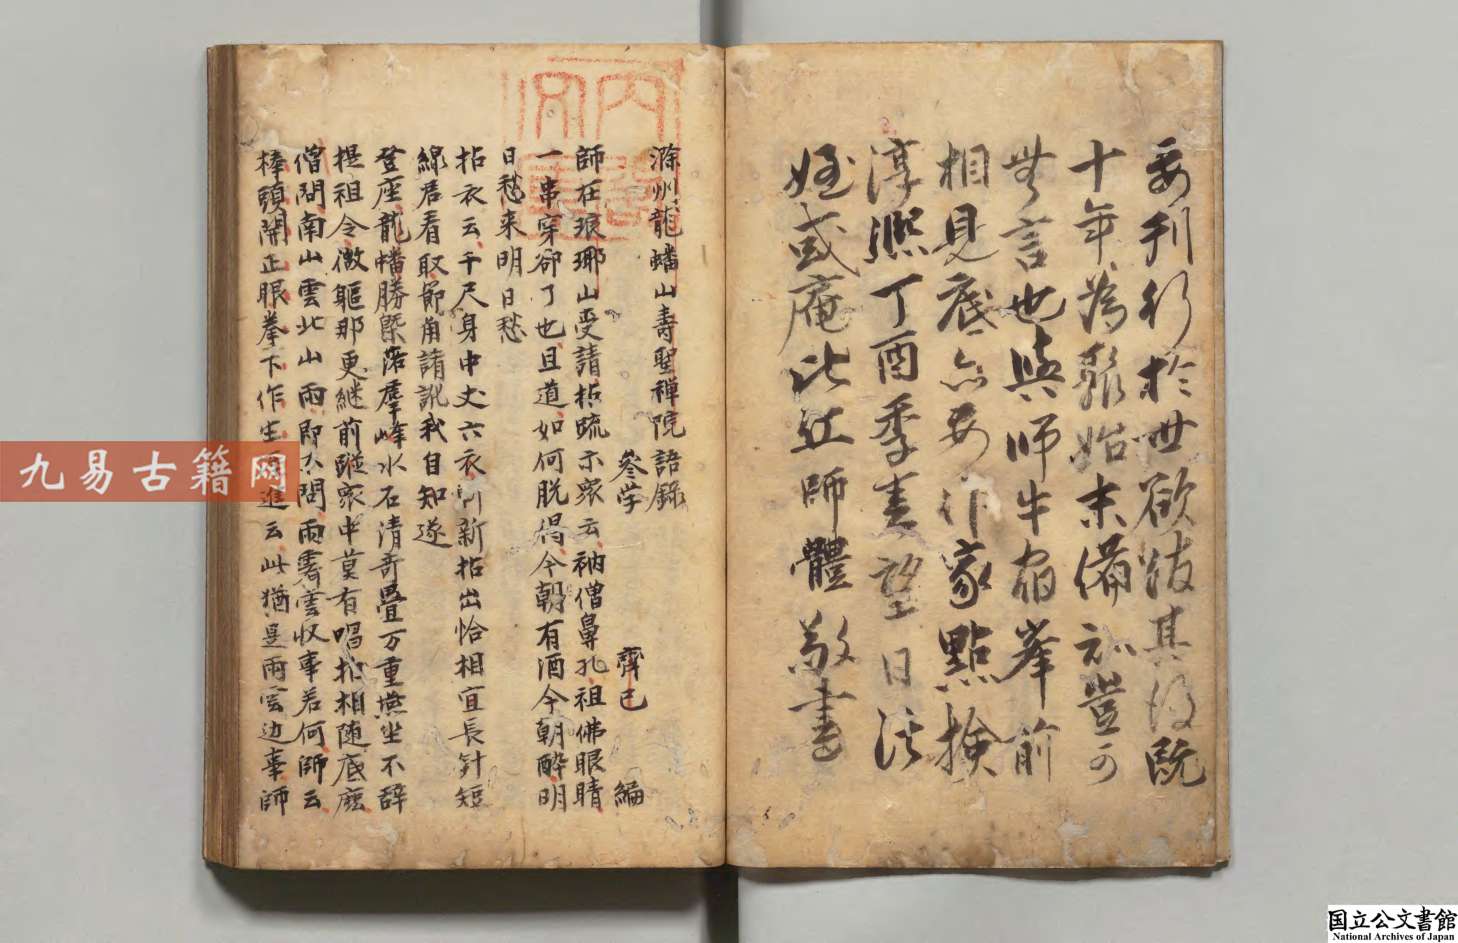 要刊行於世欲跋其後既
十年為駭始末備知豈可
無言也與師牛宿峯前
相見底亦要作家點檢
淳熈丁酉季春望日法
姪或庵比丘師體敬書
滁州龍蟠山壽聖禪院語錄
參学 齊已 編
師在琅瑘山受請拈疏示衆云衲僧鼻孔祖佛眼睛
一串穿卻了也且道如何脫得今朝有酒今朝醉明
日愁来明日愁
拈衣云千尺身中丈六衣 新拈出恰相宜長針短
線君看取節角誵訛我自知遂
登座龍幡勝槩落羣峰水石清奇疊万重燕坐不辞
提祖令傲軀那更継前蹤衆中莫有唱拍相随底麽
僧問南山雲北山雨即不問雨霽雲收事若何師云
棒頭開正眼拳下作生 進云此猶是雨雲边事師
九易古籍网
国立公文書館
National Archives of Japan